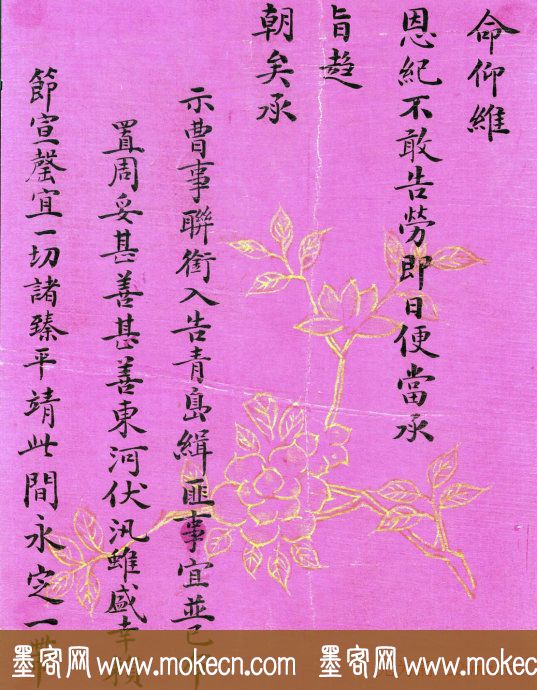 命仰維
恩紀不敢告勞即日便當承
旨趨
朝矣承
示曹事聯銜入告青島緝匪事宜並已
置周妥甚善甚善東河伏汛雖盛幸
節宣罄宜一切諸臻平靖此間永定一
墨客网 www.mokecn.com 墨客网 www.mokecn.com